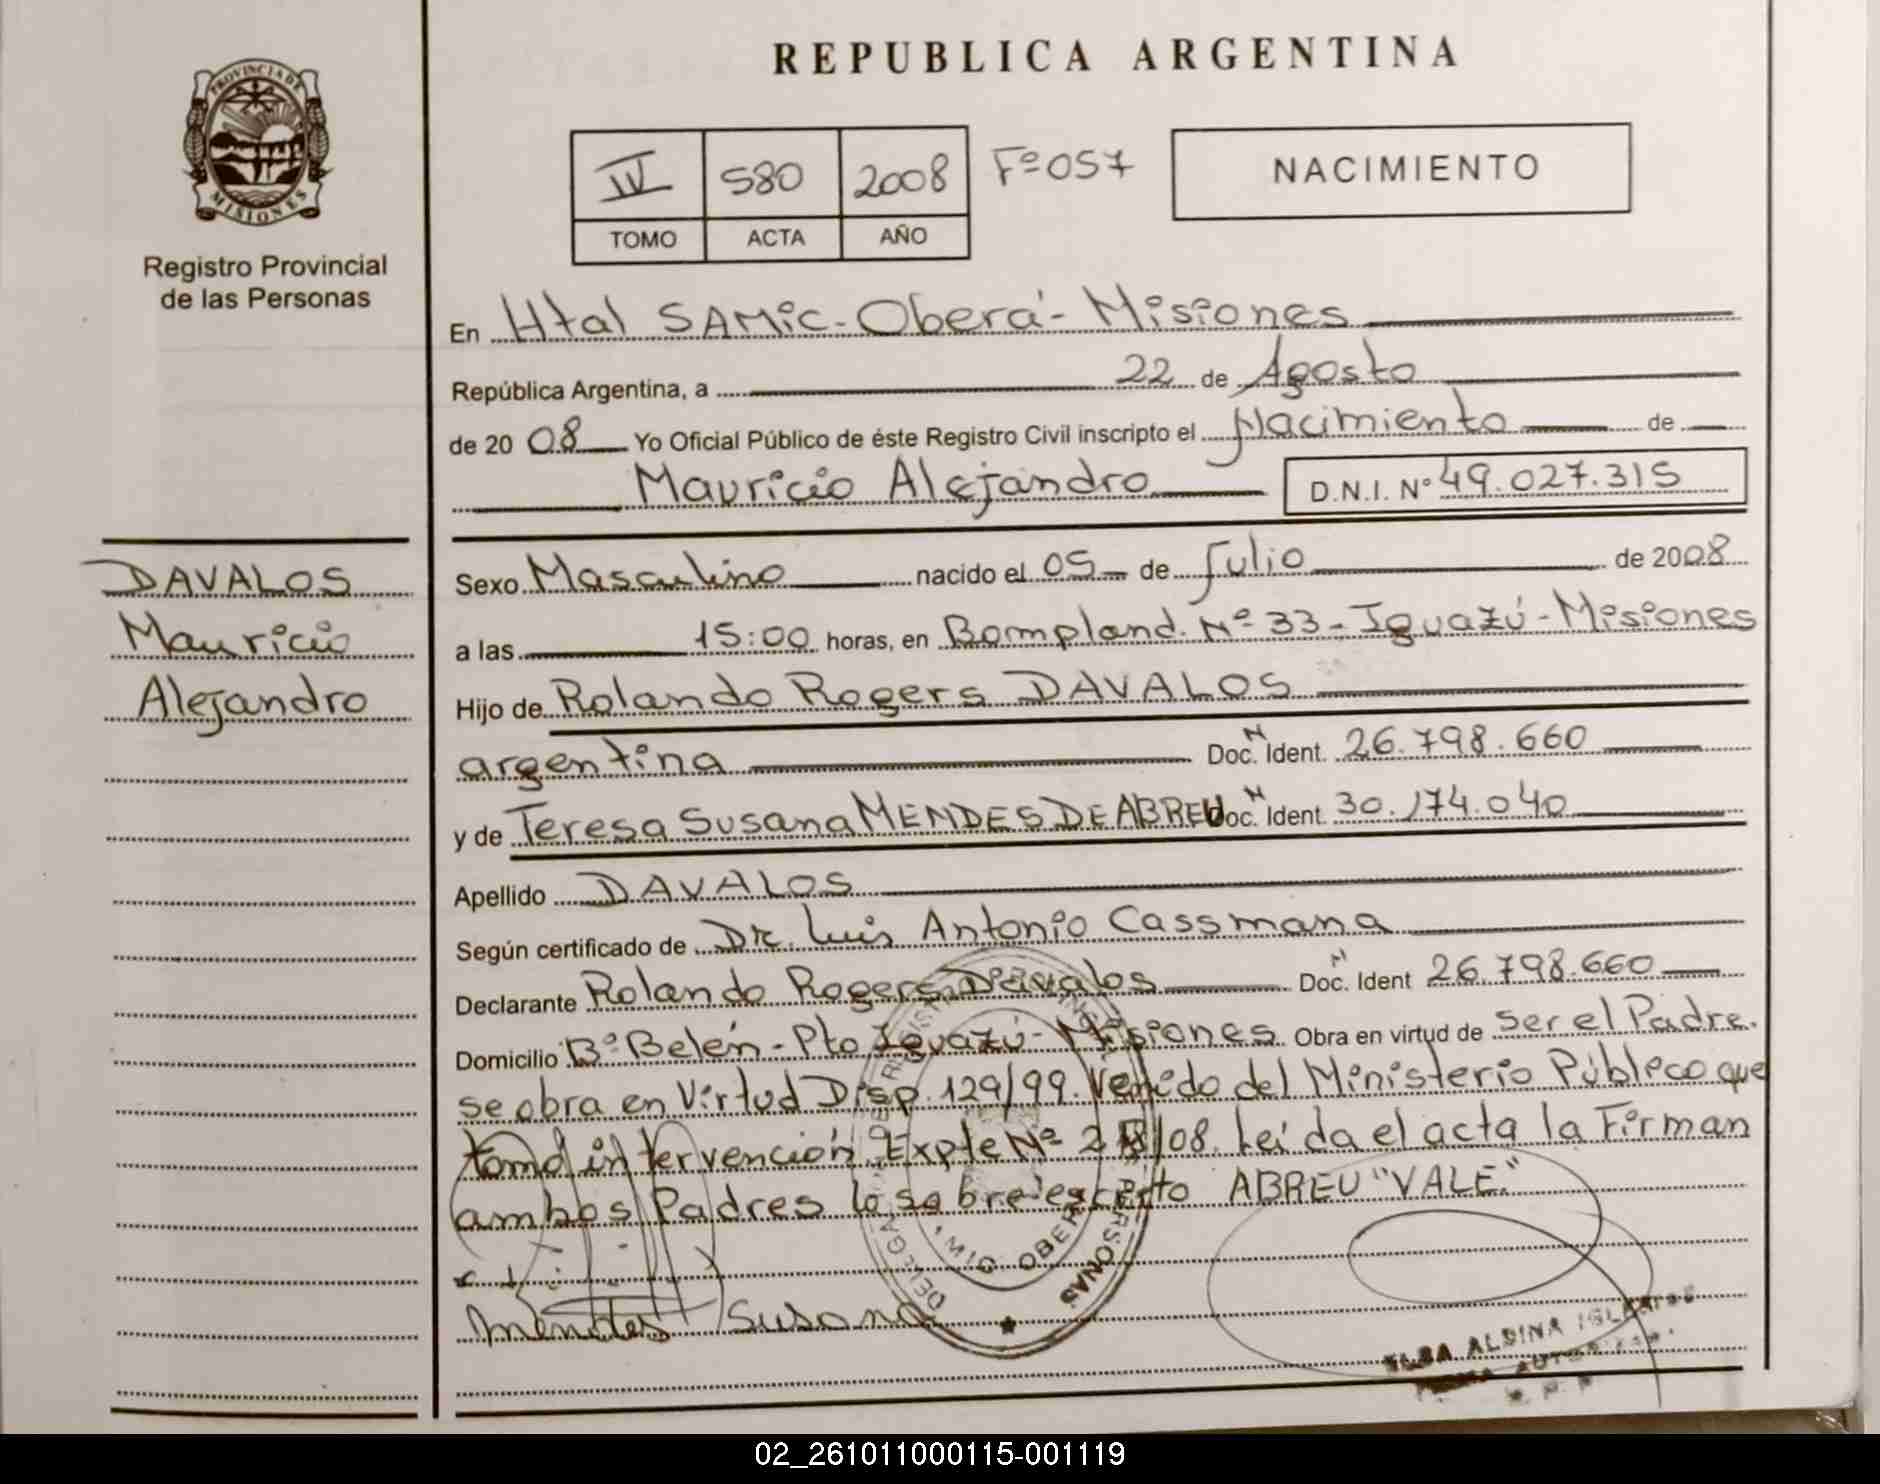 REPUBLICA ARGENTINA
PROVINCIA DE
MISIONES
Registro Provincial
de las Personas
IV 580 2008 Fº 057
TOMO ACTA AÑO
NACIMIENTO
En Htal SAMic - Oberá - Misiones
República Argentina, a 22 de Agosto
de 2008 Yo Oficial Público de éste Registro Civil inscripto el Nacimiento de
Mauricio Alejandro D.N.I. Nº 49.027.315
DAVALOS
Mauricio
Alejandro
Sexo Masculino nacido el 05 de Julio de 2008
a las 15:00 horas, en Bompland. Nº 33 - Iguazú - Misiones
Hijo de Rolando Rogers DAVALOS
argentina Doc. N Ident. 26.798.660
y de Teresa Susana MENDES DE ABREU Doc. N Ident. 30.174.040
Apellido DAVALOS
Según certificado de Dr. Luis Antonio Cassmana
Declarante Rolando Rogers Davalos Doc. N Ident 26.798.660
Domicilio Bº Belén - Pto Iguazú - Misiones Obra en virtud de ser el Padre.
se obra en Virtud Disp. 129/99. Venido del Ministerio Público que
tomó intervención Expte Nº /08. Leída el acta la Firman
ambos Padres lo sobreescrito ABREU "VALE"
Mendes Susana
ELBA ALDINA
02_261011000115-001119